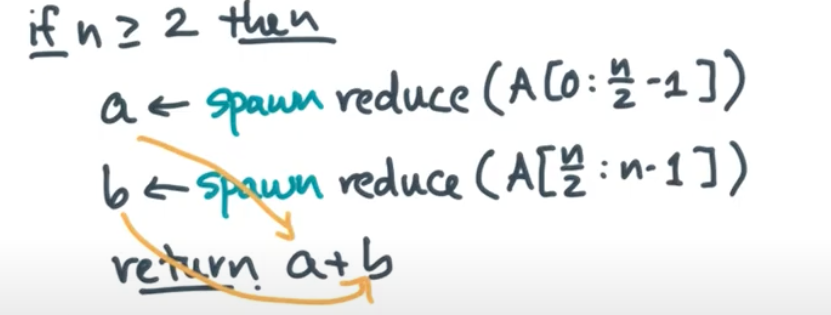 if n ≥ 2 then
a ← spawn reduce (A[0:n/2-1])
b ← spawn reduce (A[n/2:n-1])
return a+b